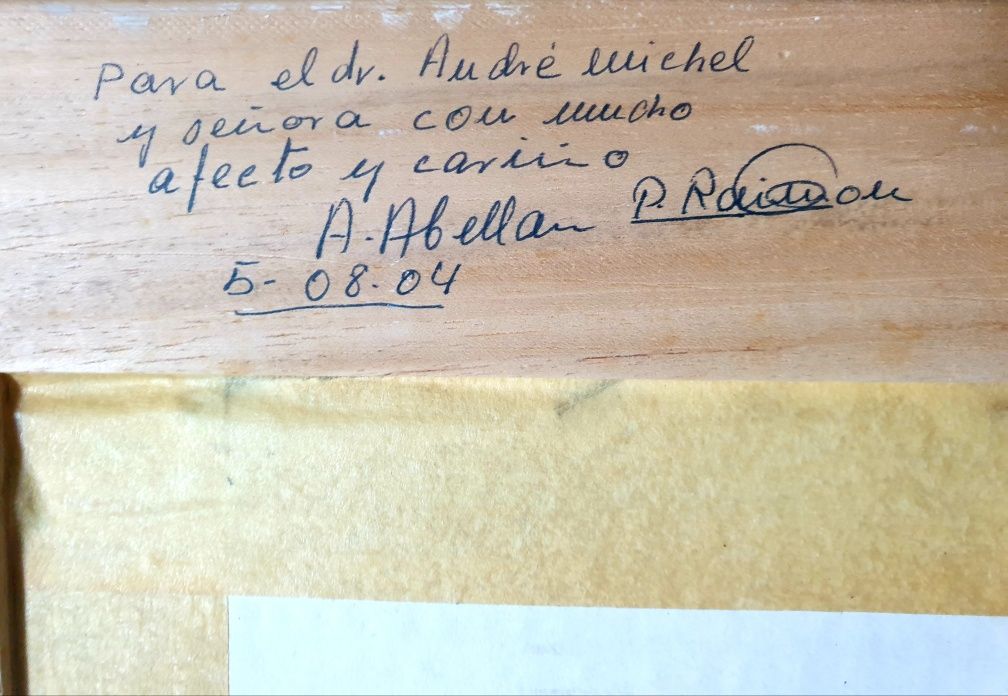 Para el dr. André Michel
y señora con mucho
afecto y cariño
A. Abellan P.
5-08-04